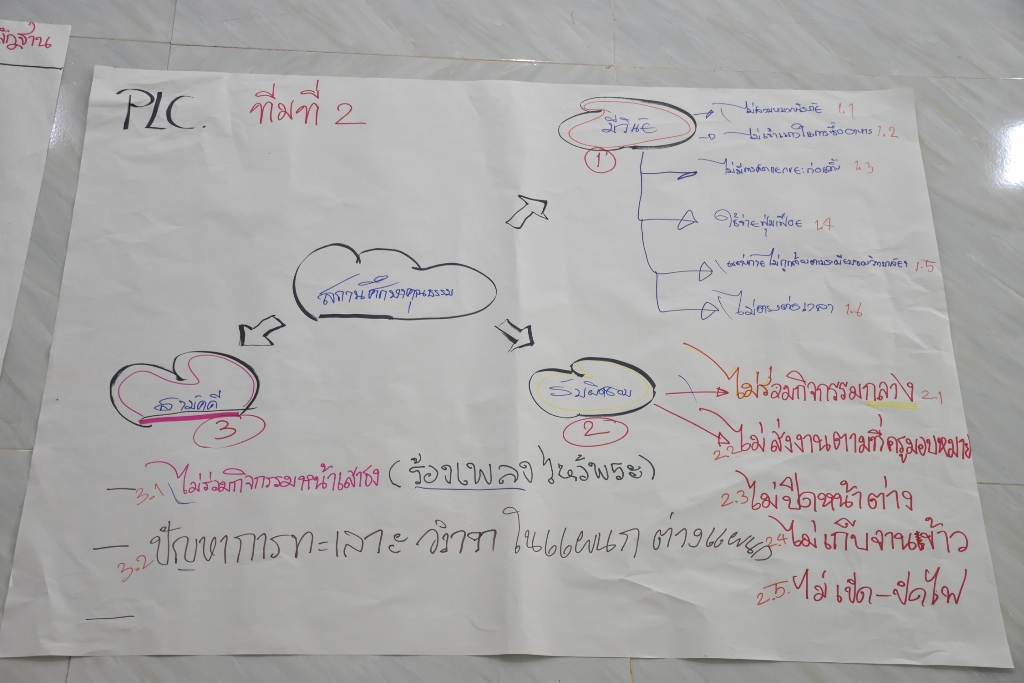 PLC. ทีมที่ 2
มีวินัย
1
ไม่สวมหมวกนิรภัย 1.1
ไม่เข้าแถวในการซื้ออาหาร 1.2
ไม่มีการคัดแยกขยะก่อนทิ้ง 1.3
ใช้จ่ายฟุ่มเฟือย 1.4
แต่งกายไม่ถูกต้องตามระเบียบของวิทยาลัยฯ 1.5
ไม่ตรงต่อเวลา 1.6
สถานศึกษาคุณธรรม
สามัคคี
3
รับผิดชอบ
2
ไม่ร่วมกิจกรรมกลาง 2.1
2.2 ไม่ส่งงานตามที่ครูมอบหมาย
2.3 ไม่ปิดหน้าต่าง
2.4 ไม่เก็บจานข้าว
2.5. ไม่เปิด-ปิดไฟ
3.1 ไม่ร่วมกิจกรรมหน้าเสาธง (ร้องเพลง ไหว้พระ)
3.2 ปัญหาการทะเลาะวิวาท ในแผนก ต่างแผนก